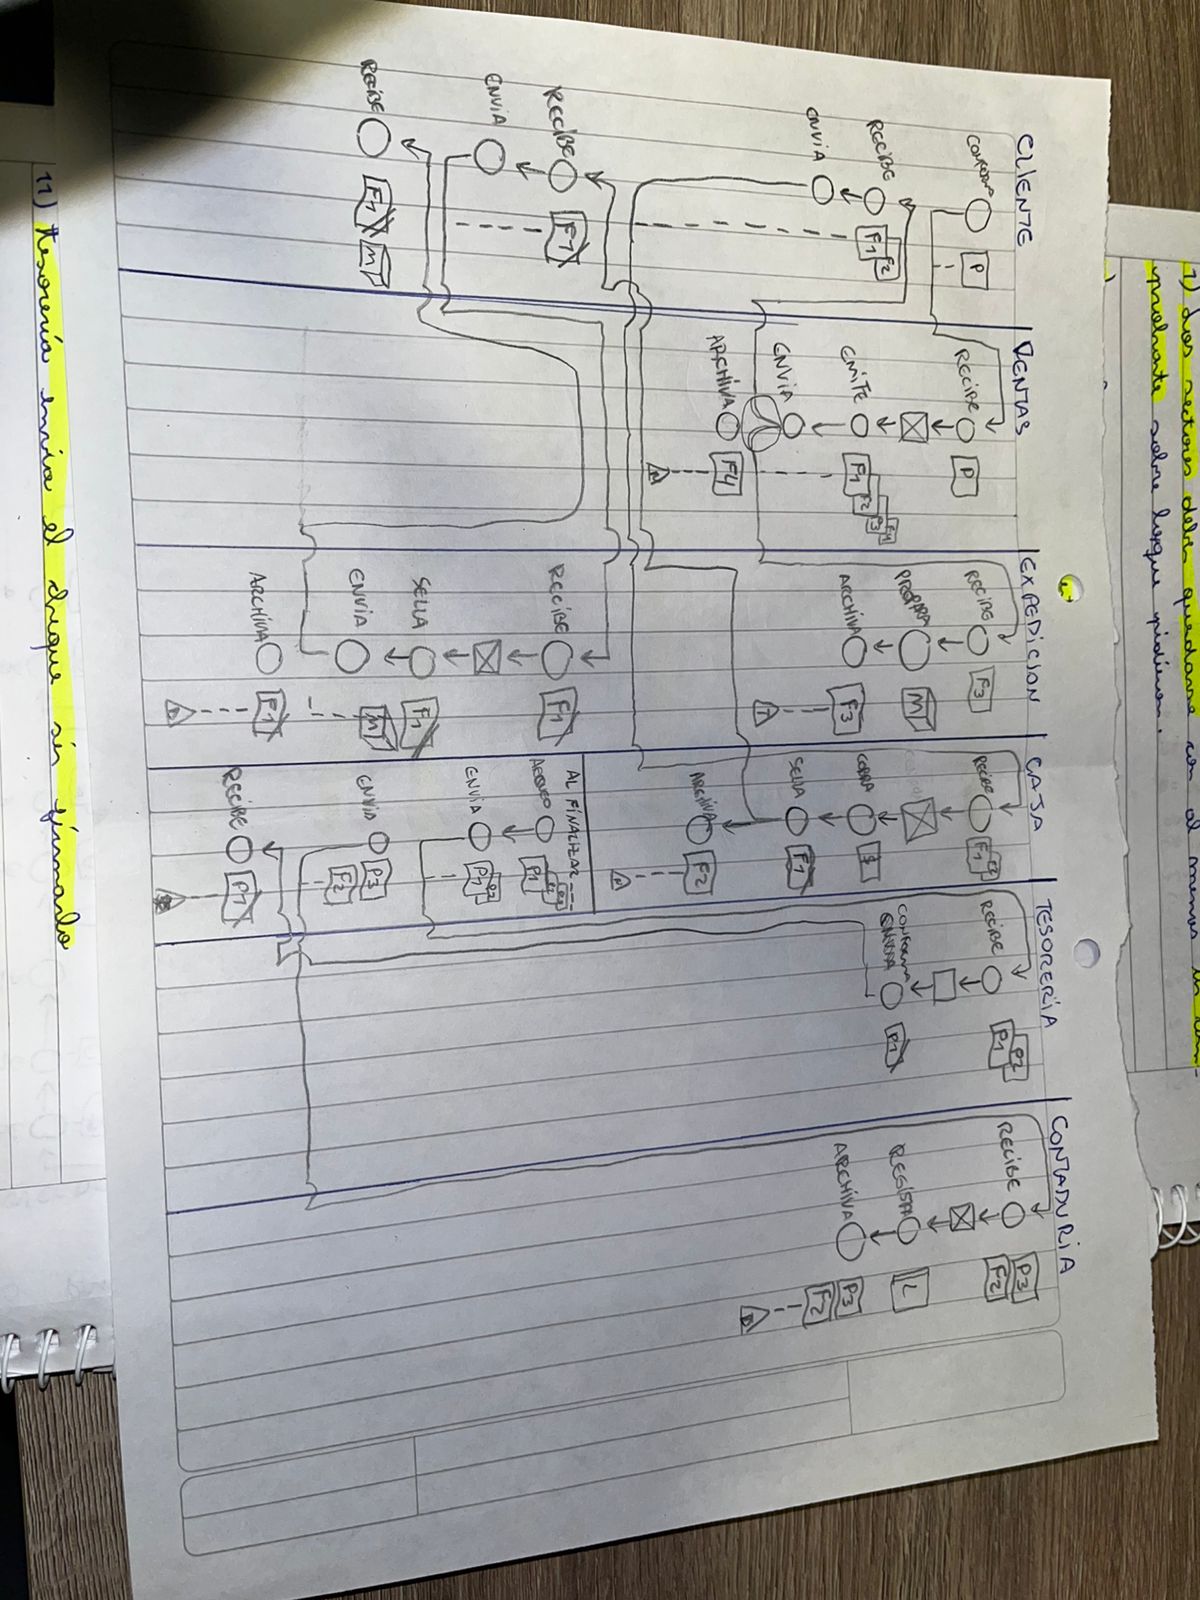 7) Los sectores deben quedarse con al menos un com-
probante sobre lo que pidieron.
CLIENTE
P
RECIBE
F1 F2
ENVIA
RECIBE
F1
ENVIA
RECIBE
F1 M
VENTAS
RECIBE
P
EMITE
F1 F2 F3 F4
ENVIA
ARCHIVA
F4
N
EXPEDICION
RECIBE
F3
PREPARA
M
ARCHIVA
F3
T
RECIBE
F1
SELLA
F1
M
ENVIA
ARCHIVA
F1
D
CAJA
RECIBE
F1 F2
COBRA
$
SELLA
F1
ARCHIVA
F2
N
AL FINALIZAR ---
ARQUEO
P1 P2 P3
ENVIA
P1 P2
ENVIA
P3
F2
RECIBE
P1
TESORERIA
RECIBE
P1 P2
CONFORMA
ENVIA
P1
CONTADURIA
RECIBE
P3
F2
REGISTRA
L
ARCHIVA
P3
F2
D
11) tesorería envia el cheque sin firmarlo